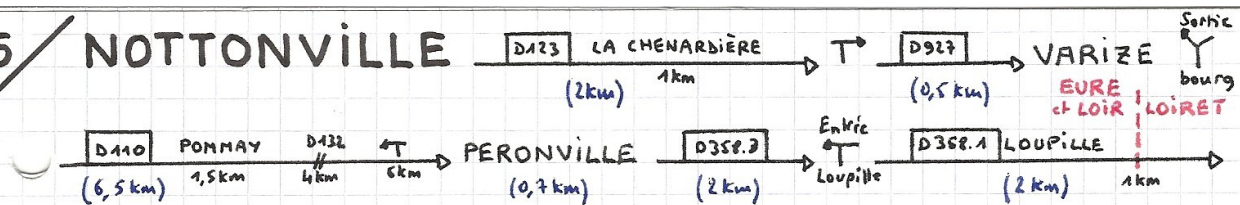 5/ NOTTONVILLE D123 LA CHENARDIÈRE 1km (2km) T D927 (0,5 km) VARIZE Sortie bourg
EURE et LOIR LOIRET
D110 POMMAY 1,5km D132 4km T 6km (6,5 km) PERONVILLE (0,7 km) D358.3 (2 km) Entrée Loupille D358.1 LOUPILLE (2 km) 1km